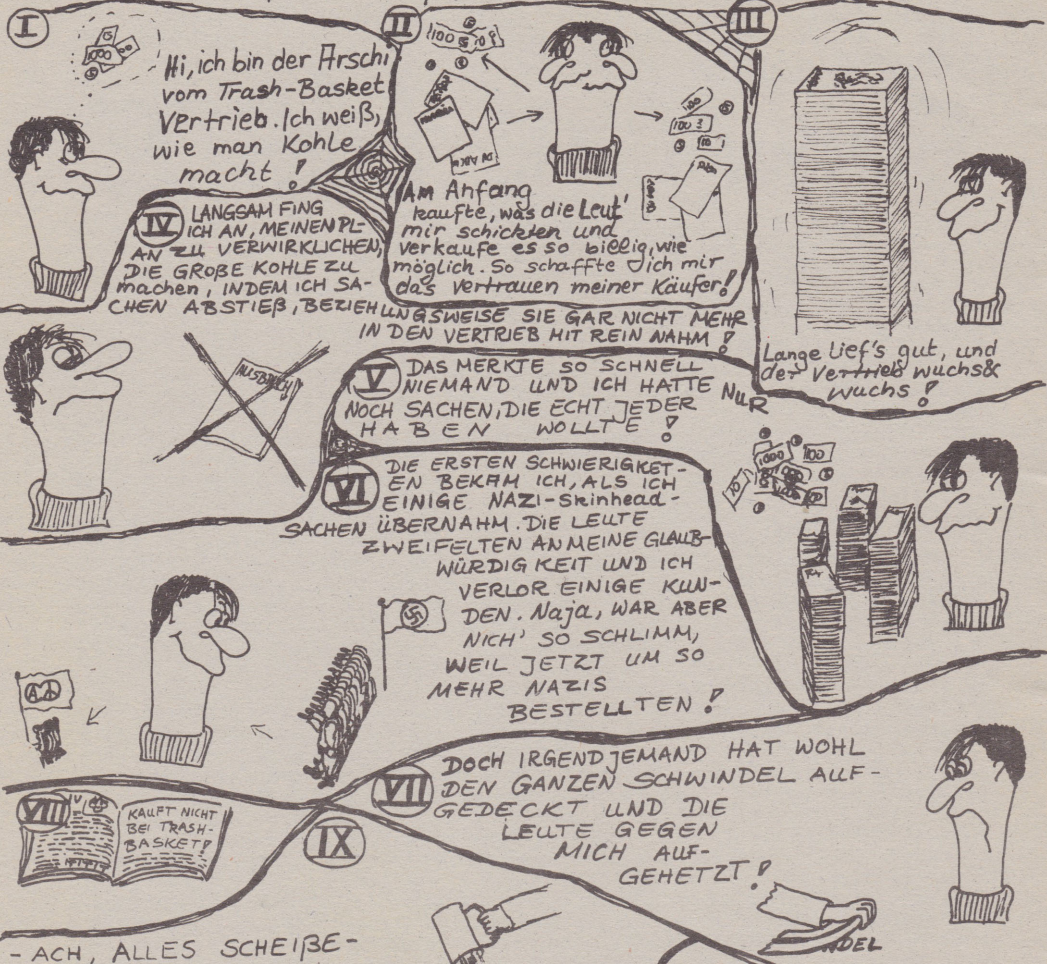 I
Hi, ich bin der Arschi
vom Trash-Basket
Vertrieb. Ich weiß,
wie man Kohle
macht!
1000
II
100
100
10
Am Anfang
kaufte, was die Leut'
mir schickten und
verkaufe es so billig, wie
möglich. So schaffte ich mir
das Vertrauen meiner Käufer!
III
Lange lief's gut, und
der Vertrieb wuchs &
wuchs!
IV
LANGSAM FING
ICH AN, MEINEN PL-
AN ZU VERWIRKLICHEN,
DIE GROßE KOHLE ZU
machen, INDEM ICH SA-
CHEN ABSTIEß, BEZIEHUNGSWEISE SIE GAR NICHT MEHR
IN DEN VERTRIEB MIT REIN NAHM!
AUSBRUCH
V
DAS MERKTE SO SCHNELL
NIEMAND UND ICH HATTE NUR
NOCH SACHEN, DIE ECHT JEDER
HABEN WOLLTE!
1000
100
10
VI
DIE ERSTEN SCHWIERIGKET-
EN BEKAM ICH, ALS ICH
EINIGE NAZI-Skinhead-
SACHEN ÜBERNAHM. DIE LEUTE
ZWEIFELTEN AN MEINE GLAUB-
WÜRDIGKEIT UND ICH
VERLOR EINIGE KUN-
DEN. Naja, WAR ABER
NICH' SO SCHLIMM,
WEIL JETZT UM SO
MEHR NAZIS
BESTELLTEN!
VII
DOCH IRGENDJEMAND HAT WOHL
DEN GANZEN SCHWINDEL AUF-
GEDECKT UND DIE
LEUTE GEGEN
MICH AUF-
GEHETZT!
VIII
KAUFT NICHT
BEI TRASH-
BASKET!
IX
NDEL
- ACH, ALLES SCHEIßE-